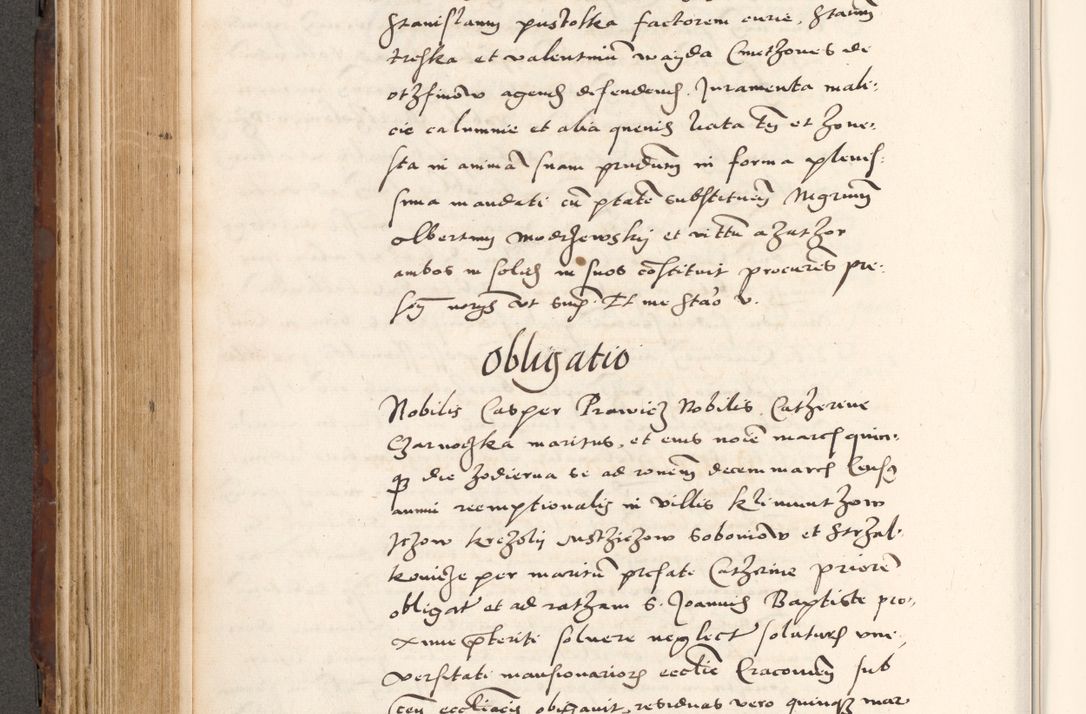 Stanislaum pustolka factorem curie, Stanm
treska et valentinū wayda Cmethones de
agend defendend. Juramenta mali-
cie calumnie et alia quenis licita tn et hone-
sta in animā suam prestandm in forma plenis-
sima mandati cū ptate substituen Mgrum
Albertum Modrzewskij et
ambos in solid in suos cōstituit procures pre-
sen ut sup. Et me Stao v.
Obligatio
Nobilis Casper Prawicz Nobilis Catherine
Czarnoczka maritus, et eius noie march quin-
q die hodierna se ad decem march Census
annui reemptionalis in villis Klimunthow
Jczow Soboniow et Strzal-
kowicze per maritū prefate Catherine priorē
obligat et ad ratham S. Joannis Baptiste pro-
xime pterite soluere neglect soluturs vni-
versitati mansionariors ecclie Cracouien sub
cen ecclīacis obligavit, residuas vero quinq mar